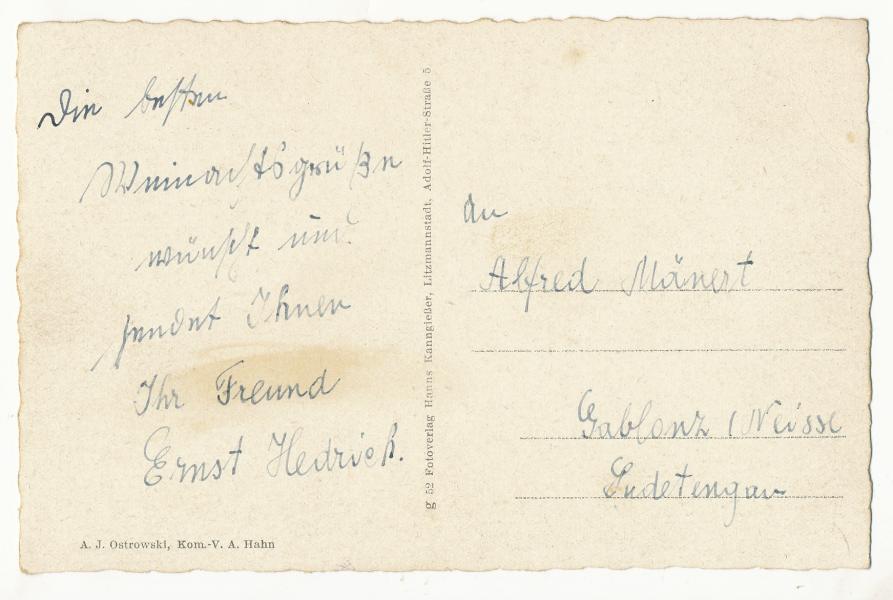 Die besten
Weinachtsgrüße
wünscht und
sendet Ihnen
Ihr Freund
Ernst Hedrich.
A. J. Ostrowski, Kom.-V. A. Hahn
g 52 Fotoverlag Hanns Kanngießer, Litzmannstadt, Adolf-Hitler-Straße 5
An
Alfred Mänert
Gablonz / Neisse
Sudetengau